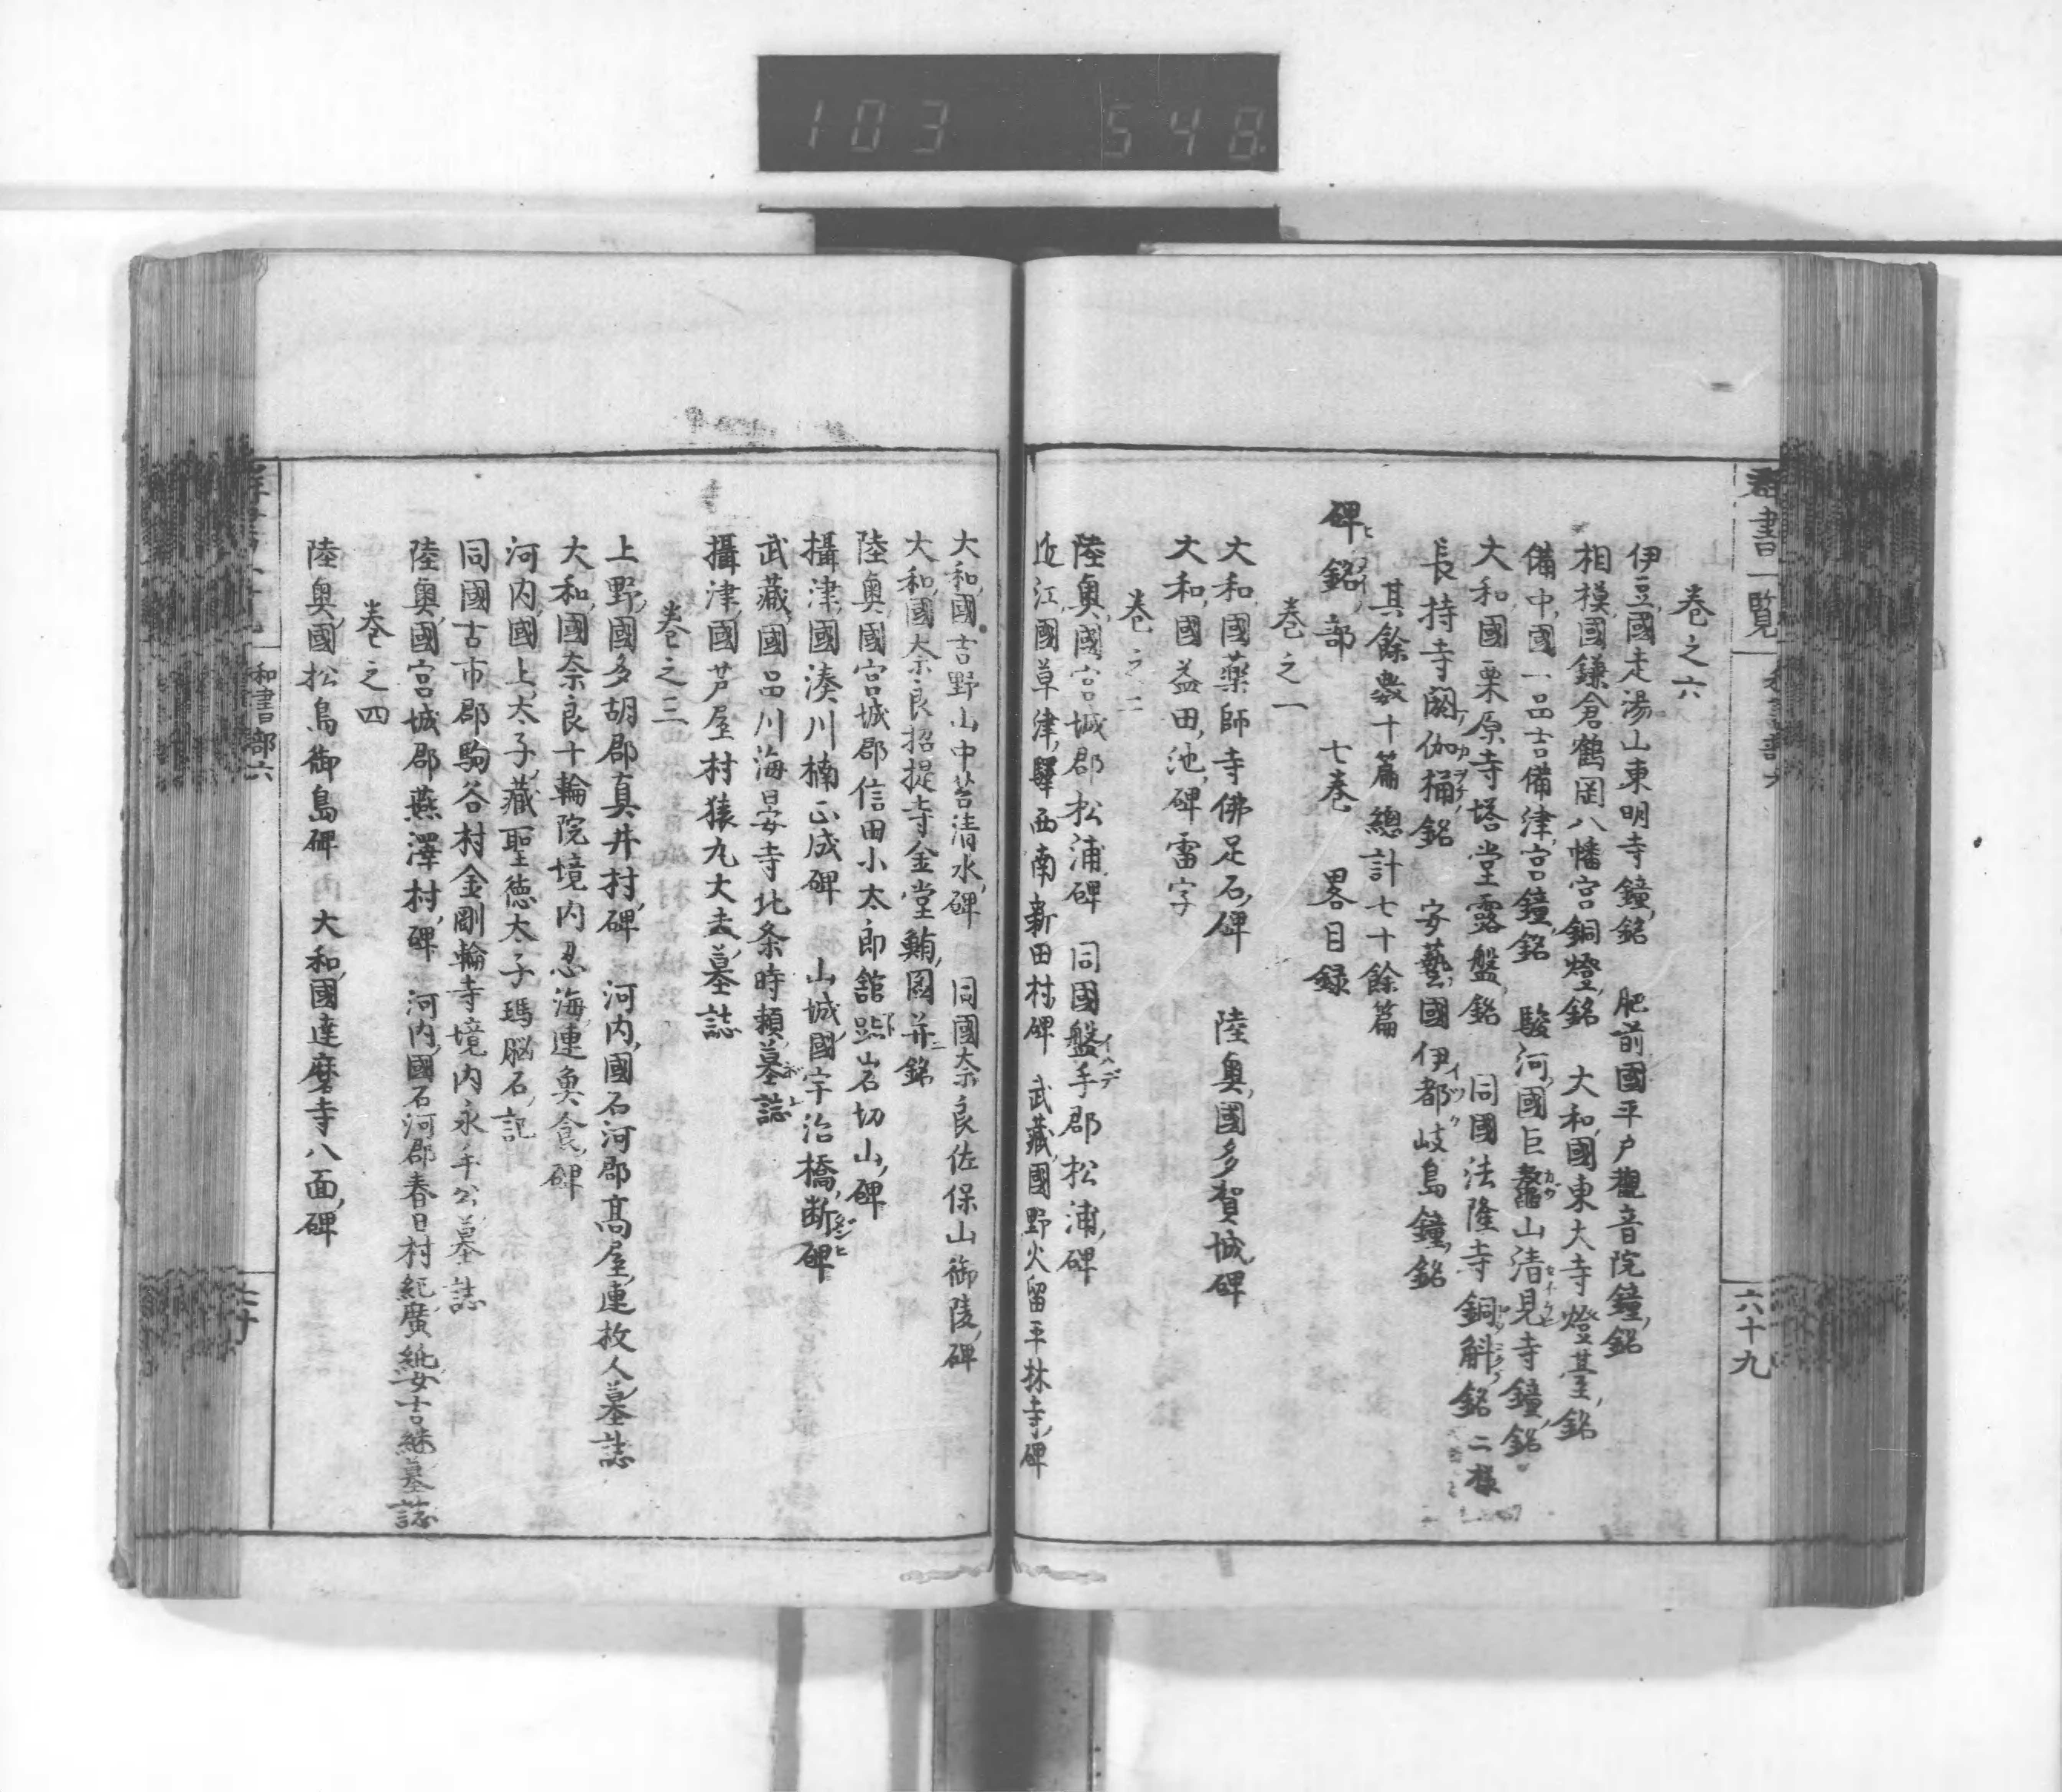 103 548
群書一覽
六十九
卷之六
伊豆國走湯山東明寺鐘銘 肥前國平戶觀音院鐘銘
相模國鎌倉鶴岡八幡宮銅燈銘 大和國東大寺燈臺銘
備中國一品吉備津宮鐘銘 駿河國巨鼇山清見寺鐘銘
大和國栗原寺塔堂露盤銘 同國法隆寺銅斛銘二樣
長持寺閼伽桶銘 安藝國伊都岐島鐘銘
其餘數十篇總計七十餘篇
碑銘部 七卷 畧目録
卷之一
大和國藥師寺佛足石碑 陸奧國多賀城碑
大和國益田池碑雷字
卷之二
陸奧國宮城郡松浦碑 同國盤手郡松浦碑
近江國草津驛西南新田村碑 武藏國野火留平林寺碑
大和國吉野山中苔清水碑 同國奈良佐保山御陵碑
大和國奈良招提寺金堂鮪圖并銘
陸奧國宮城郡信田小太郎舘趾岩切山碑
攝津國湊川楠正成碑 山城國宇治橋断碑
武藏國品川海晏寺北条時賴墓誌
攝津國芦屋村猿丸大夫墓誌
卷之三
上野國多胡郡真井村碑 河内國石河郡髙屋連枚人墓誌
大和國奈良十輪院境内忍海連魚食碑
河内國上太子藏聖德太子瑪腦石記
同國古市郡駒谷村金剛輪寺境内永手公墓誌
陸奧國宮城郡燕澤村碑 河内國石河郡春日村紀廣純女吉継墓誌
卷之四
陸奧國松島御島碑 大和國達磨寺八面碑
和書部六